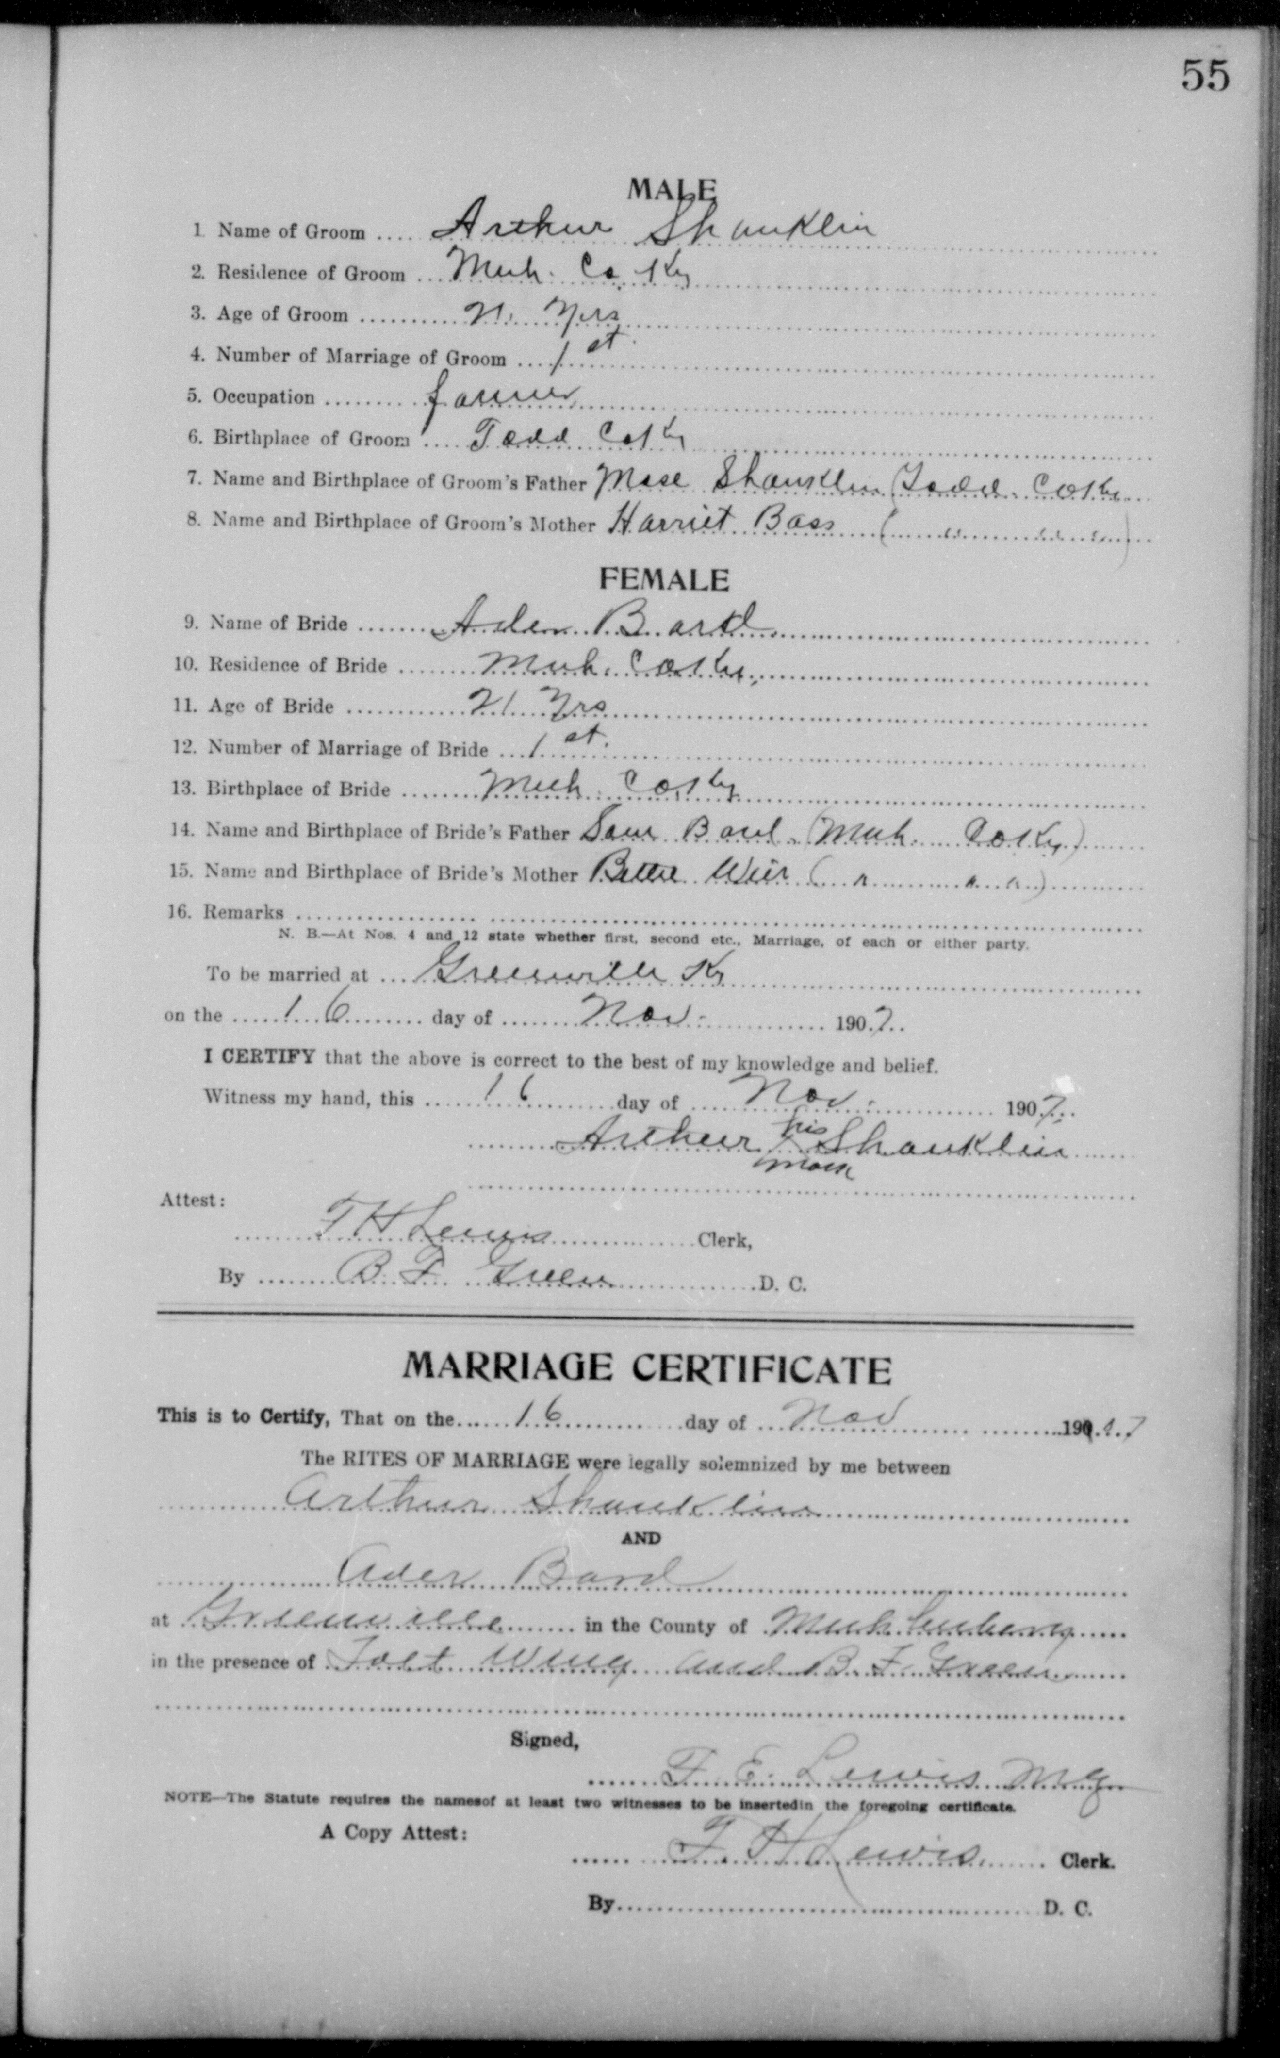 55
MALE
1 Name of Groom .... Arthur Shanklin
2. Residence of Groom ... Muh. Co. Ky
3. Age of Groom ........... 21. Yrs
4. Number of Marriage of Groom .... 1st
5. Occupation ......... farmer
6. Birthplace of Groom .... Todd Co Ky
7. Name and Birthplace of Groom's Father Mose Shanklin (Todd. Co Ky
8. Name and Birthplace of Groom's Mother Harriet Bass ( " " " )
FEMALE
9. Name of Bride ....... Bard
10. Residence of Bride ....... Muh. Co Ky.
11. Age of Bride ............ 21 Yrs
12. Number of Marriage of Bride ... 1st.
13. Birthplace of Bride ....... Muh Co Ky
14. Name and Birthplace of Bride's Father Sam Bard (Muh. Co Ky.)
15. Name and Birthplace of Bride's Mother Bettie Weir ( " " " )
16. Remarks ..................
N. B.—At Nos. 4 and 12 state whether first, second etc., Marriage, of each or either party.
To be married at ... Greenville Ky
on the ..... 16 ........ day of ....... Nov. ............ 1907..
I CERTIFY that the above is correct to the best of my knowledge and belief.
Witness my hand, this ...... 16 ........ day of ..... Nov. ............ 1907...
Arthur his X mark Shanklin
Attest:
T H Lewis ............... Clerk,
By ....... B. F. Green .............. D. C.
MARRIAGE CERTIFICATE
This is to Certify, That on the ...... 16 ............ day of ... Nov .......... 190.0.7
The RITES OF MARRIAGE were legally solemnized by me between
Arthur Shanklin
AND
Ader Bard
at Greenville ........ in the County of Muhlenberg
in the presence of Wing and B. F. Green
Signed,
T. E. Lewis
NOTE—The Statute requires the namesof at least two witnesses to be insertedin the foregoing certificate.
A Copy Attest:
T. H Lewis ...... Clerk.
By ........................................ D. C.